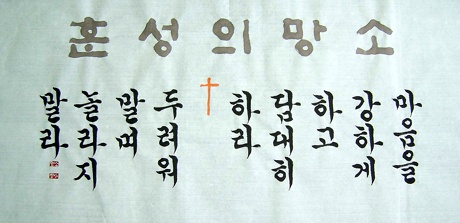 소망의성훈
마음을
강하게
하고
담대히
하라
두려워
말며
놀라지
말라